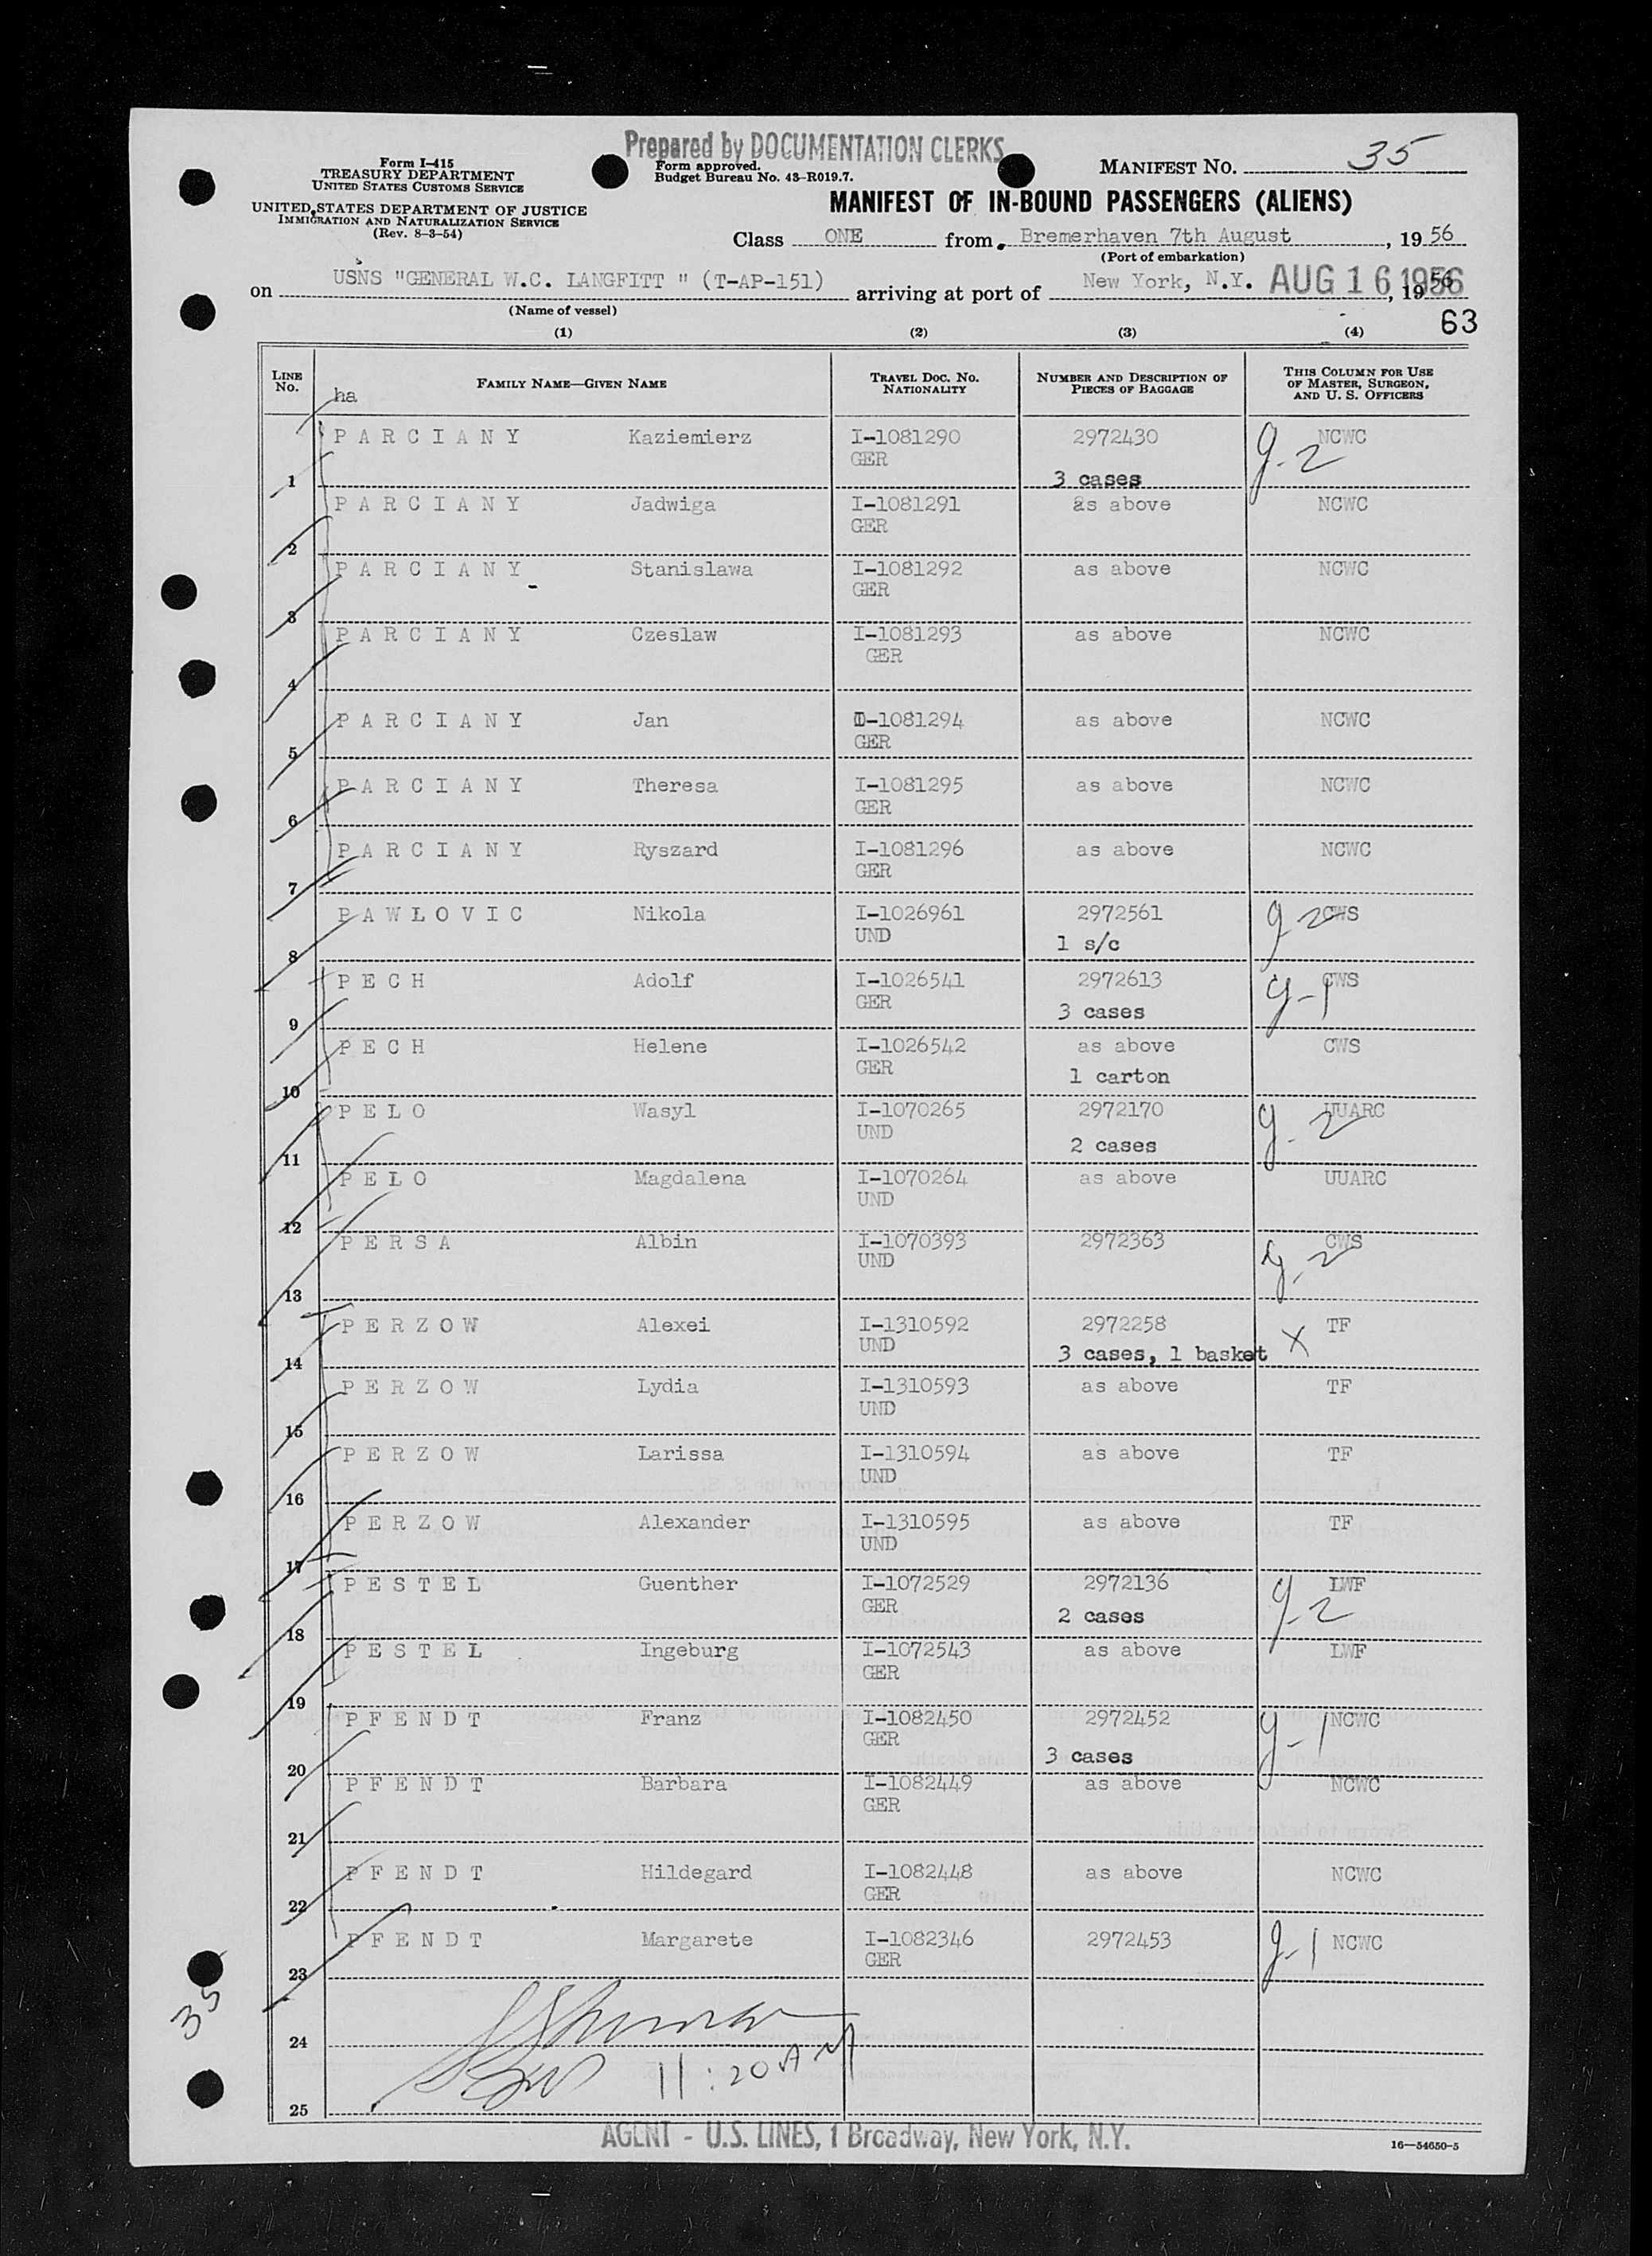 Prepared by DOCUMENTATION CLERKS
Form I-415
TREASURY DEPARTMENT
UNITED STATES CUSTOMS SERVICE
UNITED STATES DEPARTMENT OF JUSTICE
IMMIGRATION AND NATURALIZATION SERVICE
(Rev. 8-3-54)
Form approved.
Budget Bureau No. 43-R019.7.
MANIFEST NO. 35
MANIFEST OF IN-BOUND PASSENGERS (ALIENS)
Class ONE from Bremerhaven 7th August, 19 56
(Port of embarkation)
on USNS "GENERAL W.C. LANGFITT " (T-AP-151) arriving at port of New York, N.Y. AUG 16 1956, 1956
(Name of vessel)
63
(1) (2) (3) (4)
LINE No. FAMILY NAME—GIVEN NAME TRAVEL DOC. NO. NATIONALITY NUMBER AND DESCRIPTION OF PIECES OF BAGGAGE THIS COLUMN FOR USE OF MASTER, SURGEON, AND U. S. OFFICERS
ha
P A R C I A N Y Kaziemierz I-1081290 2972430 NCWC
GER g-2
1 3 cases
P A R C I A N Y Jadwiga I-1081291 as above NCWC
GER
2
P A R C I A N Y Stanislawa I-1081292 as above NCWC
GER
3
P A R C I A N Y Czeslaw I-1081293 as above NCWC
GER
4
P A R C I A N Y Jan I-1081294 as above NCWC
5 GER
P A R C I A N Y Theresa I-1081295 as above NCWC
6 GER
P A R C I A N Y Ryszard I-1081296 as above NCWC
GER
7
P A W L O V I C Nikola I-1026961 2972561 g-2 CWS
UND 1 s/c
8
P E C H Adolf I-1026541 2972613 g-1 CWS
GER 3 cases
9
P E C H Helene I-1026542 as above CWS
GER 1 carton
10
P E L O Wasyl I-1070265 2972170 g-2 UUARC
UND 2 cases
11
P E L O Magdalena I-1070264 as above UUARC
UND
12
P E R S A Albin I-1070393 2972363 CWS
UND g-2
13
P E R Z O W Alexei I-1310592 2972258 X TF
UND 3 cases, 1 basket
14
P E R Z O W Lydia I-1310593 as above TF
UND
15
P E R Z O W Larissa I-1310594 as above TF
UND
16
P E R Z O W Alexander I-1310595 as above TF
UND
17
P E S T E L Guenther I-1072529 2972136 g-2 LWF
GER 2 cases
18
P E S T E L Ingeburg I-1072543 as above LWF
GER
19
P F E N D T Franz I-1082450 2972452 g-1 NCWC
GER 3 cases
20
P F E N D T Barbara I-1082449 as above NCWC
GER
21
P F E N D T Hildegard I-1082448 as above NCWC
GER
22
P F E N D T Margarete I-1082346 2972453 g-1 NCWC
GER
23
35
24
11:20 AM
25
AGENT - U.S. LINES, 1 Broadway, New York, N.Y.
16—54650-5